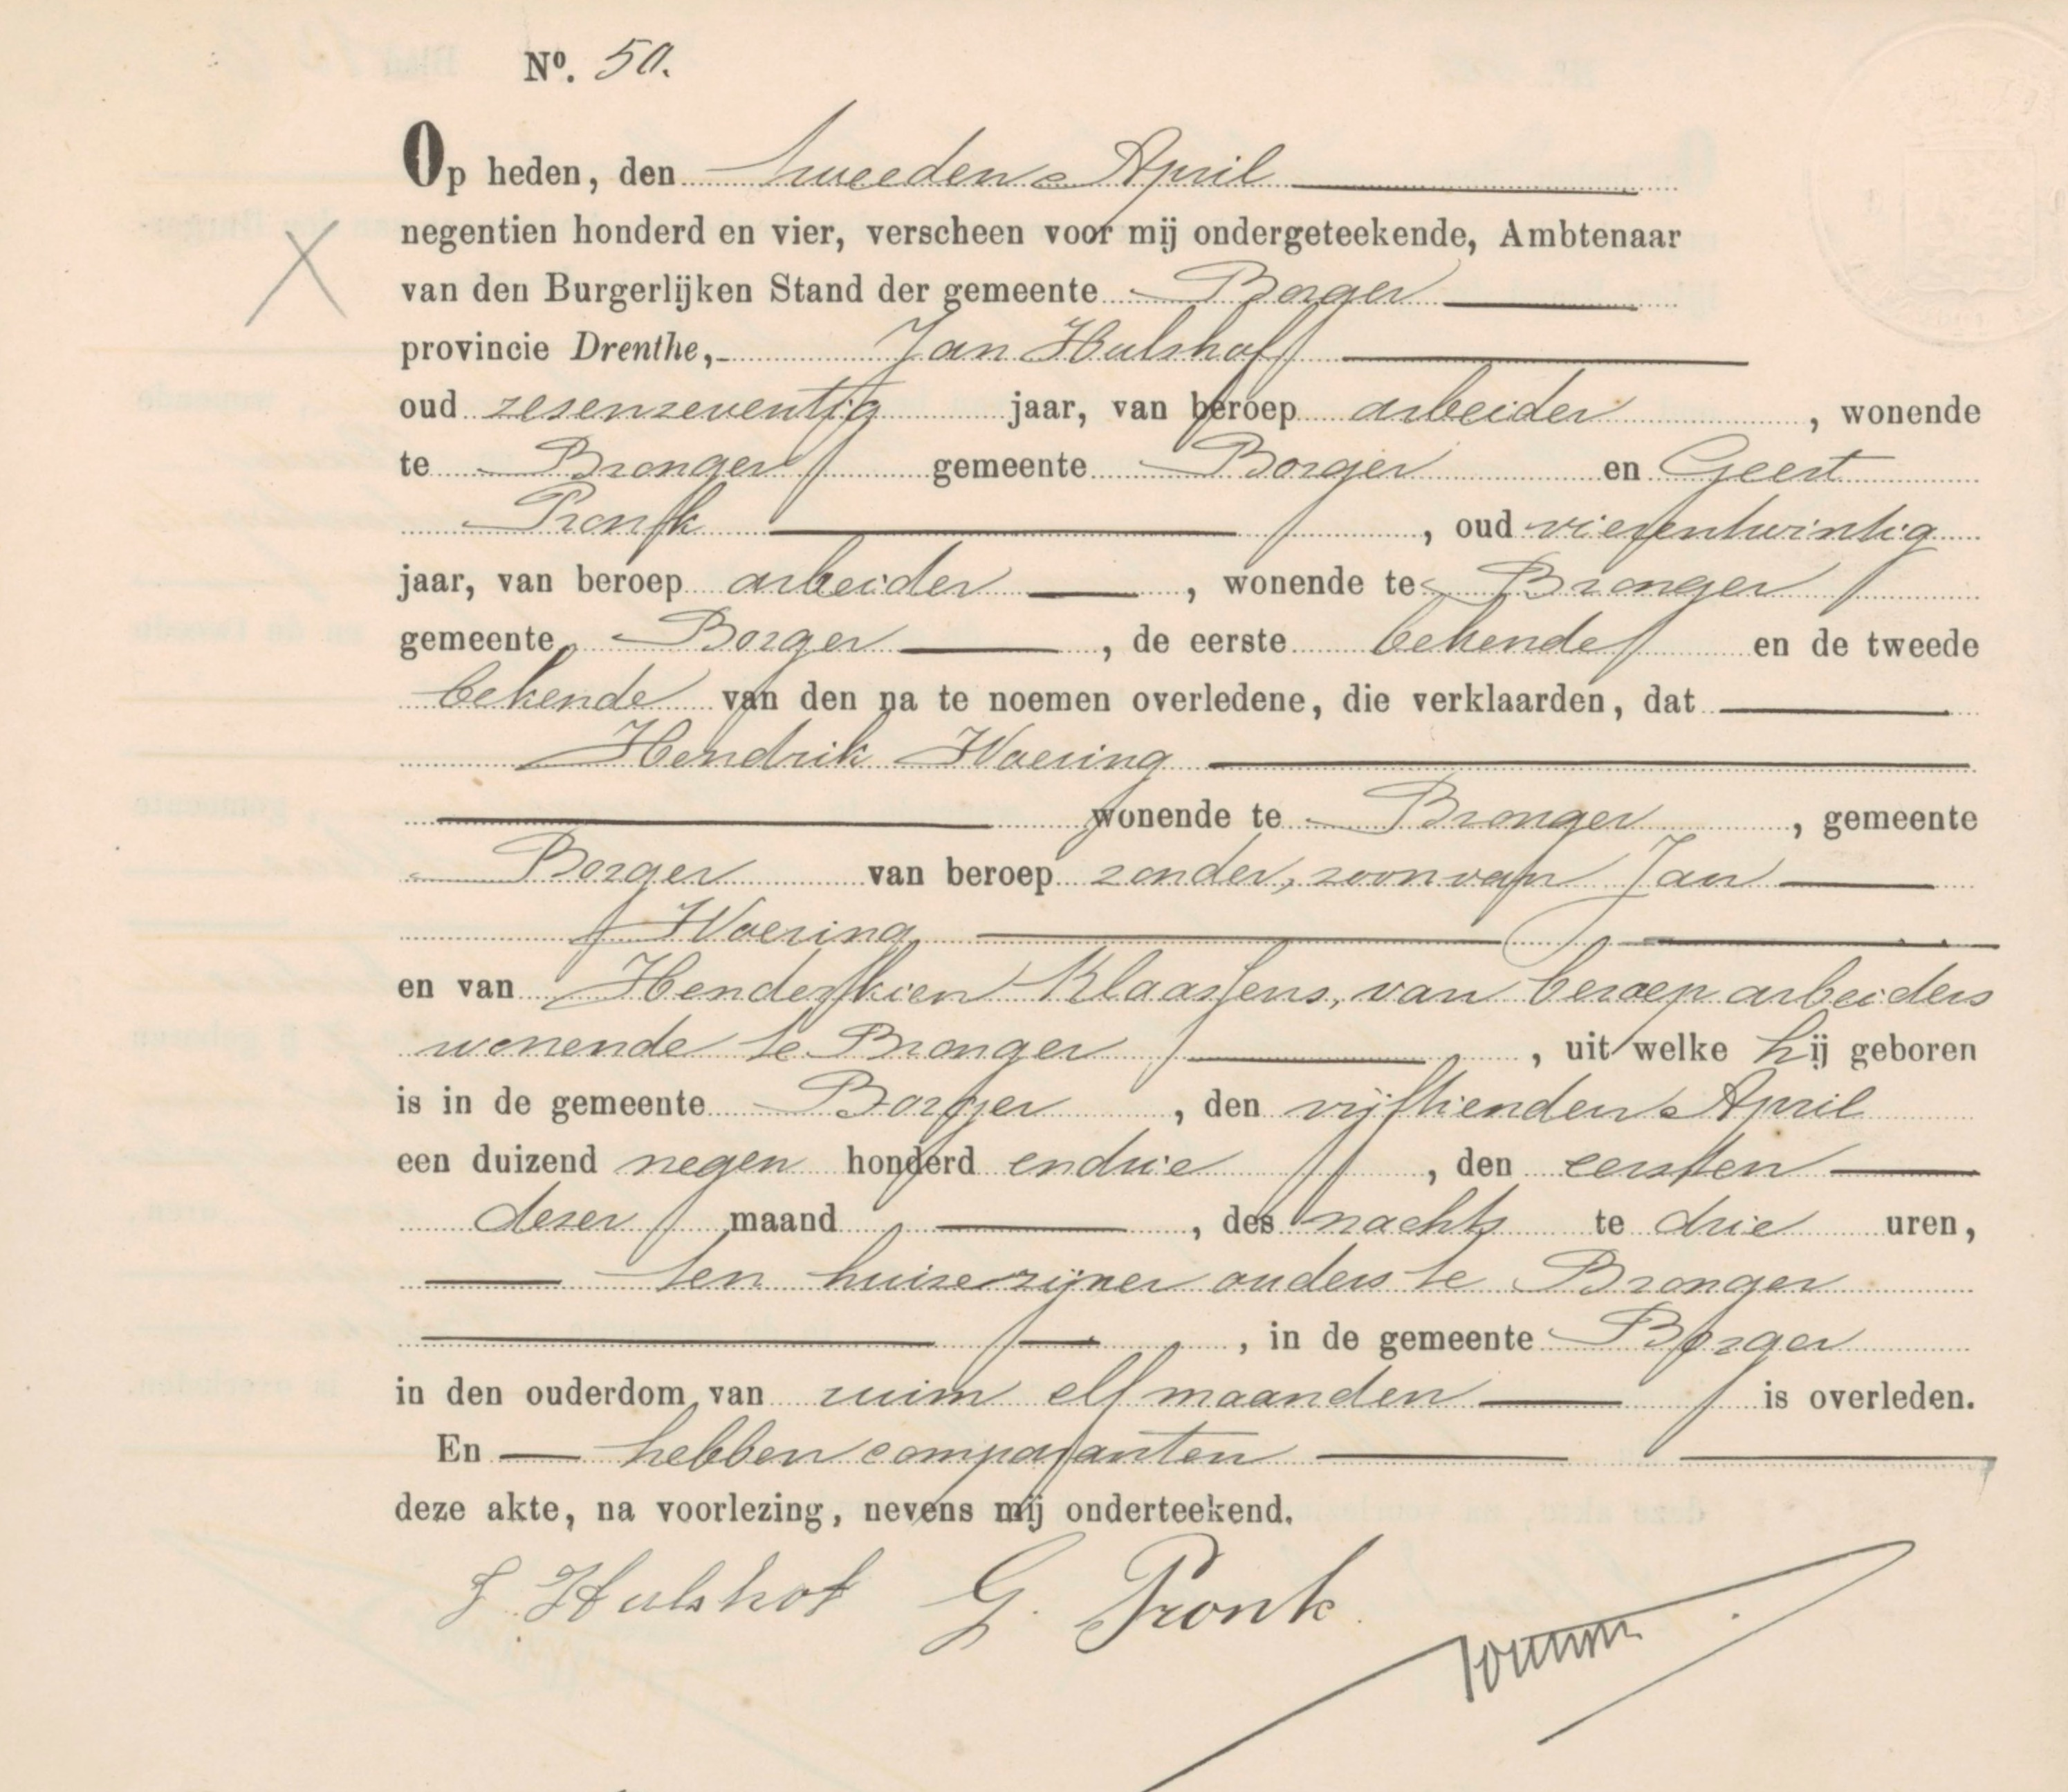 Nº. 50.
Op heden, den tweeden April
negentien honderd en vier, verscheen voor mij ondergeteekende, Ambtenaar
van den Burgerlijken Stand der gemeente Borger
provincie Drenthe, Jan Hulshof
oud zesenzeventig jaar, van beroep arbeider, wonende
te Bronger gemeente Borger en Geert
Pronk, oud vierentwintig
jaar, van beroep arbeider, wonende te Bronger
gemeente Borger, de eerste bekende en de tweede
bekende van den na te noemen overledene, die verklaarden, dat
Hendrik Woering
wonende te Bronger, gemeente
Borger van beroep zonder, zoon van Jan
Woering
en van Henderkien Klaassens, van beroep arbeiders
wonende te Bronger, uit welke hij geboren
is in de gemeente Borger, den vijftienden April
een duizend negen honderd en drie, den eersten
dezer maand, des nachts te drie uren,
ten huize zijner ouders te Bronger
, in de gemeente Borger
in den ouderdom van ruim elf maanden is overleden.
En hebben comparanten
deze akte, na voorlezing, nevens mij onderteekend.
J. Hulshof G. Pronk